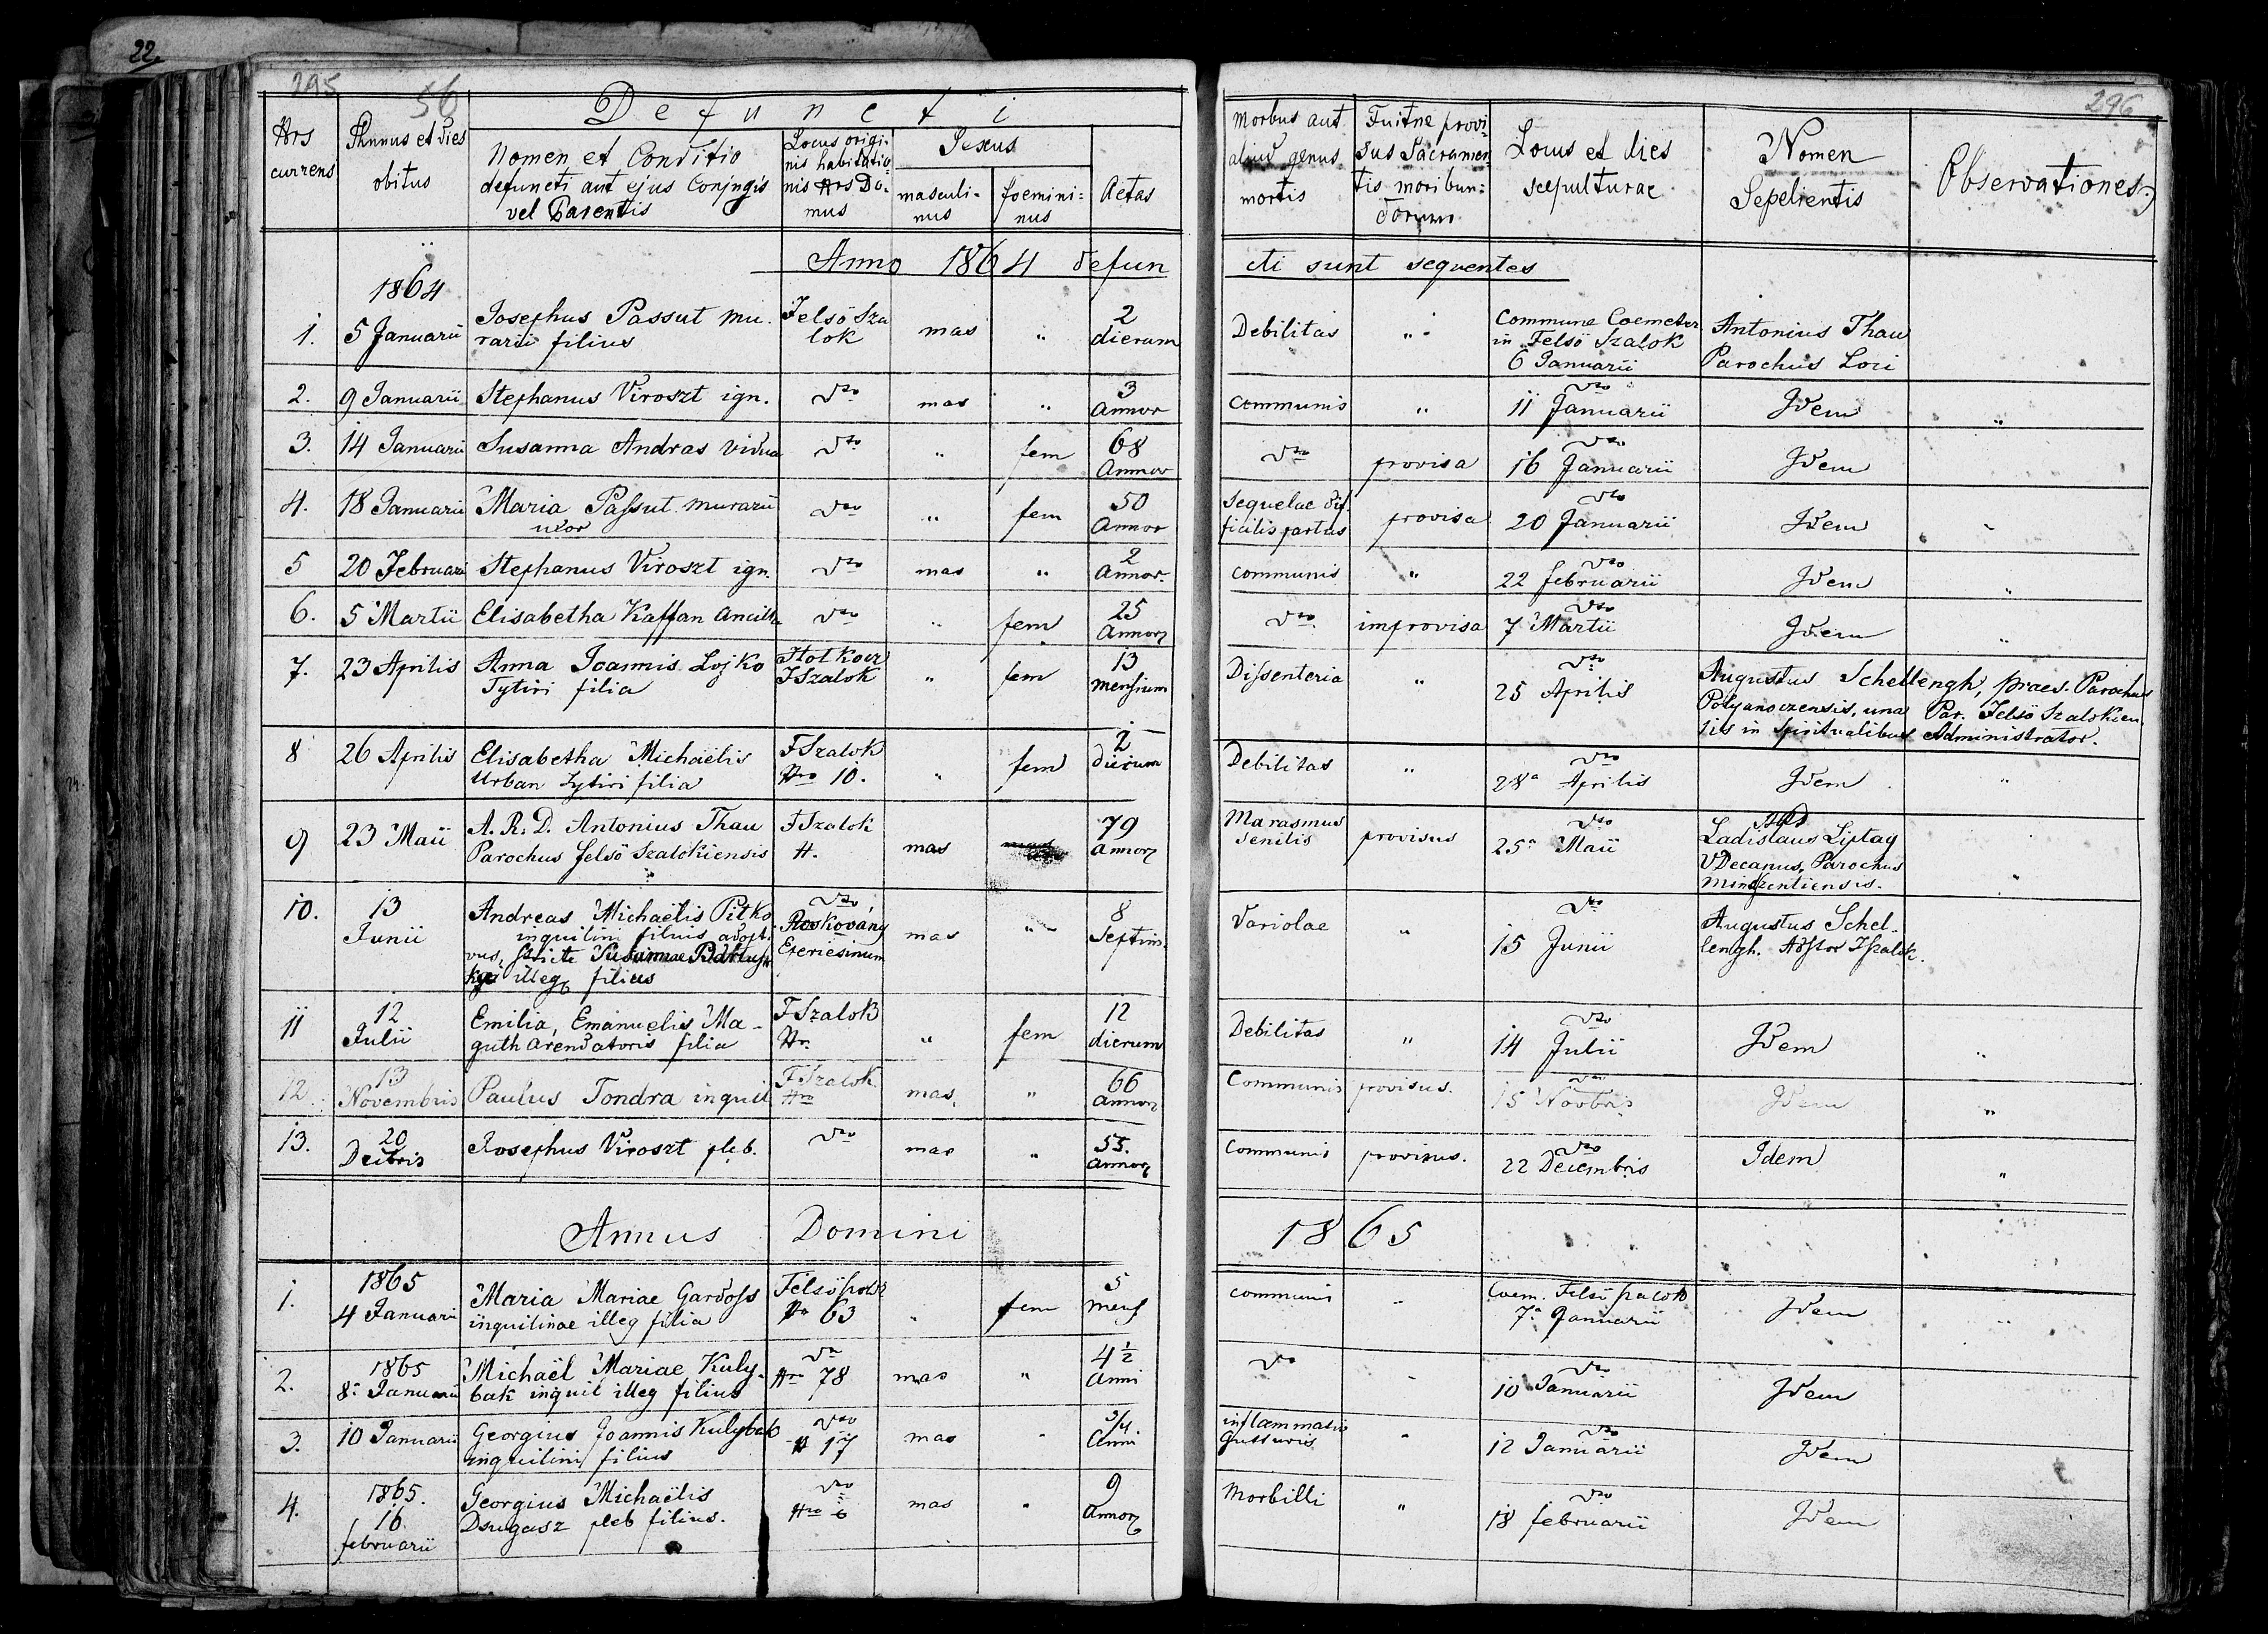 22.
295
56
296
Defuncti
Nrs currens
Annus et dies obitus
Nomen et Conditio defuncti aut ejus Conjugis vel Parentis
Locus origi- nis habitatio- nis Nrs Do- mus
Sexus
masculi- nus
foemini- nus
Aetas
Morbus aut aliud genus mortis
Fuitne provi- sus Sacramen- tis moribun- dorum
Locus et dies sepulturae
Nomen Sepelientis
Observationes
Anno 1864 defun cti sunt sequentes
1864
1. 5 Januarii Josephus Passut mu- rarii filius Felsö Sza lok mas " 2 dierum Debilitas " Commune Coemeter in Felsö Szalok 6 Januarii Antonius Thau Parochus Loci
2. 9 Januarii Stephanus Viroszt ign. dto mas " 3 Annor communis " dto 11 Januarii Idem "
3. 14 Januarii Susanna Andras vidua dto " fem 68 Annor dto provisa dto 16 Januarii Idem
4. 18 Januarii Maria Passut murarii uxor dto " fem 50 Annor sequelae dif- ficilis partus provisa dto 20 Januarii Idem
5 20 Februari Stephanus Viroszt ign. dto mas " 2 Annor. communis " dto 22 februarii Idem
6. 5 Martii Elisabetha Kaffan ancilla dto " fem 25 Annor dto improvisa dto 7 Martii Idem "
7. 23 Aprilis Anna Joannis Lojko Tytiri filia FSzalok " fem 13 mensium Dissenteria " dto 25 Aprilis Augustus Schellengh, praes. Parochus Polyanoczensis, una Par. Felsö Szalokien sis in spiritualibus Administrator.
8 26 Aprilis Elisabetha Michaëlis Urban Tytiri filia FSzalok Nro 10. " fem 2 dierum Debilitas " dto 28a Aprilis Idem "
9 23 Maii A. R. D. Antonius Thau Parochus felsö Szalokiensis FSzalok N. mas 79 annor Marasmus senilis provisus dto 25a Maii Ladislaus Liptay VDecanus, Parochus Mindszentiensis. "
10. 13 Junii Andreas Michaëlis Pitko inquilini filius adopti vus, stricte Susannae illeg filius dto Roskovány mas " 8 Septim. Variolae " dto 15 Junii Augustus Schel- lengh.
11 12 Julii Emilia, Emanuelis Ma- guth Arendatoris filia FSzalok Nr. " fem 12 dierum Debilitas " dto 14 Julii Idem "
12. 13 Novembris Paulus Tondra inquil FSzalok Nro mas. " 66 annor Communis provisus. dto 15 Novbris Idem "
13. 20 Decbris Josephus Viroszt pleb. dto mas " 55. annor communis provisus. dto 22 Decembris Idem "
Annus Domini 1865
1. 1865 4 Januari Maria Mariae Gardoss inquilinae illeg filia Nr 63 " fem 5 mens communis " Coem. Felsö szalok 7a Januarii Idem "
2. 1865 8a Januarii Michaël Mariae Kuly- bak inquil illeg filius dto Nro 78 mas " 4 1/2 anni dto - dto 10 Januarii Idem
3. 10 Januarii Georgius Joannis Kulybak inquilini filius dto N 17 mas " 3/4 Anni inflammatio gutturis " dto 12 Januarii Idem
4. 1865. 16 februarii Georgius Michaëlis Dsugasz pleb filius. dto Nro 6 mas " 9 Annor Morbilli " dto 18 februarii Idem